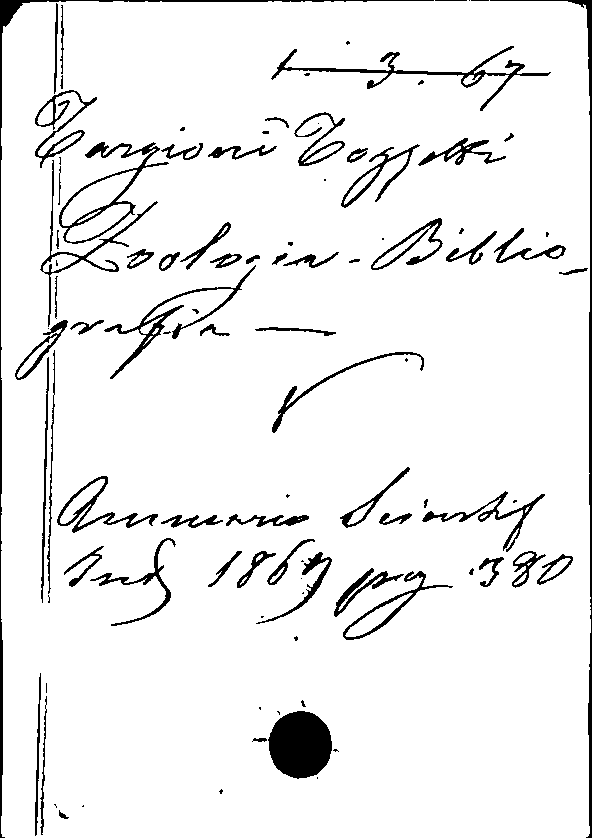 1. 3. 67
Targioni Tozzetti
Zoologia - Biblio-
grafia —
Annuario Scientif
Ind 1867 pag 380